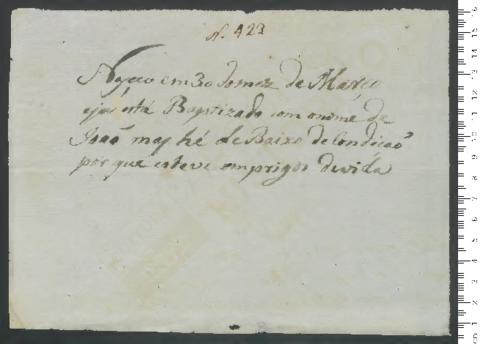 N. 423
Naceo em 30 do mez de Março
eja está Baptizado com onome de
Joaõ mas hé de Baixo de Condicaõ
por que esteve em prigos devida